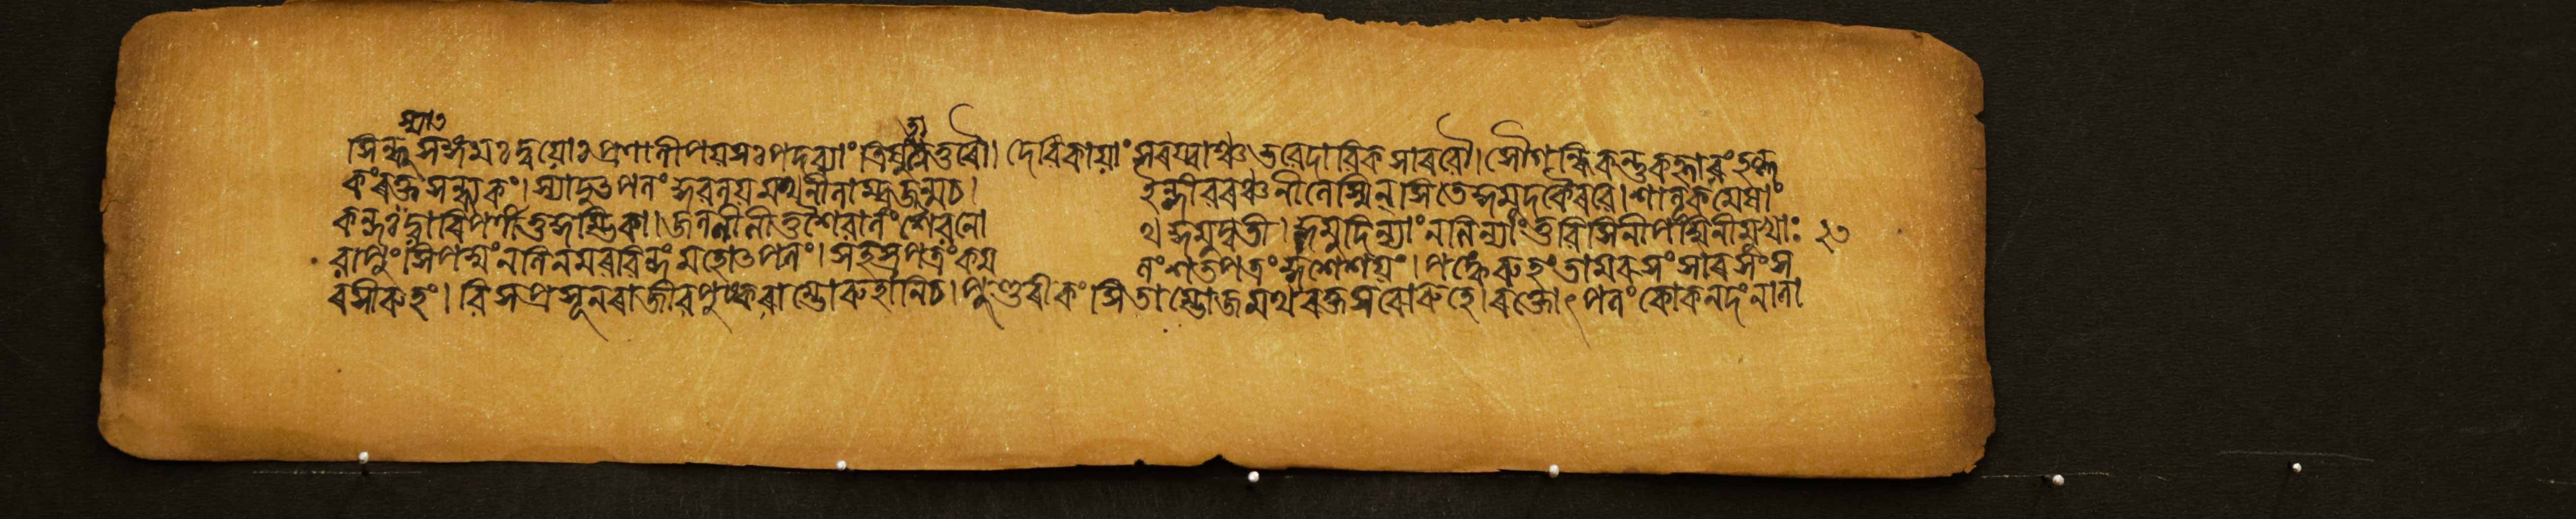 স্যাৎ
সিন্ধুসঙ্গমঃ দ্বয়োঃ প্রণালীপয়সঃ পদব্যাং ত্রিষুতূত্তৰৌ। দেরিকায়াং সৰয্বাঞ্চ ভরেদারিকসাৰরৌ। সৌগন্ধিকন্তুকহ্লাৰং হল্ল
কংৰক্তসন্ধ্যকং। স্যাদুৎপলং কুরলয়মথনীলাম্বুজন্মচ। ইন্দীরৰঞ্চনীলেস্মিন্ সিতেকুমুদকৈৰরে। শালূকমেষাং
কন্দঃ দ্বাৰিপর্ণীতুকুম্ভিকা। জলনীলীতুশৈরালং শৈরলো থ কুমুদ্বতী। কুমুদিন্যাং নলিন্যাংতুরিসিনীপদ্মিনীমুখাঃ ২৩
রাপুংসিপদ্মং নলিনমৰরিন্দং মহোৎপলং। সহস্রপত্রং কম লং শতপত্রং কুশেশয়ং। পঙ্কেৰুহং তামৰসং সাৰসং স
ৰসীৰুহং। রিসপ্রসূনৰাজীরপুষ্কৰাম্ভোৰুহানিচ। পুণ্ডৰীকং সিতাম্ভোজমথৰক্তসৰোৰুহে। ৰক্তোৎপলং কোকনদং নালা